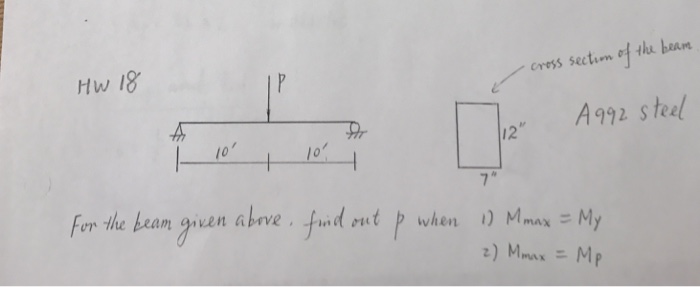 cross section of the beam
HW 18
P
A992 steel
12"
10'
10'
7"
For the beam given above. find out p when 1) Mmax = My
2) Mmax = Mp